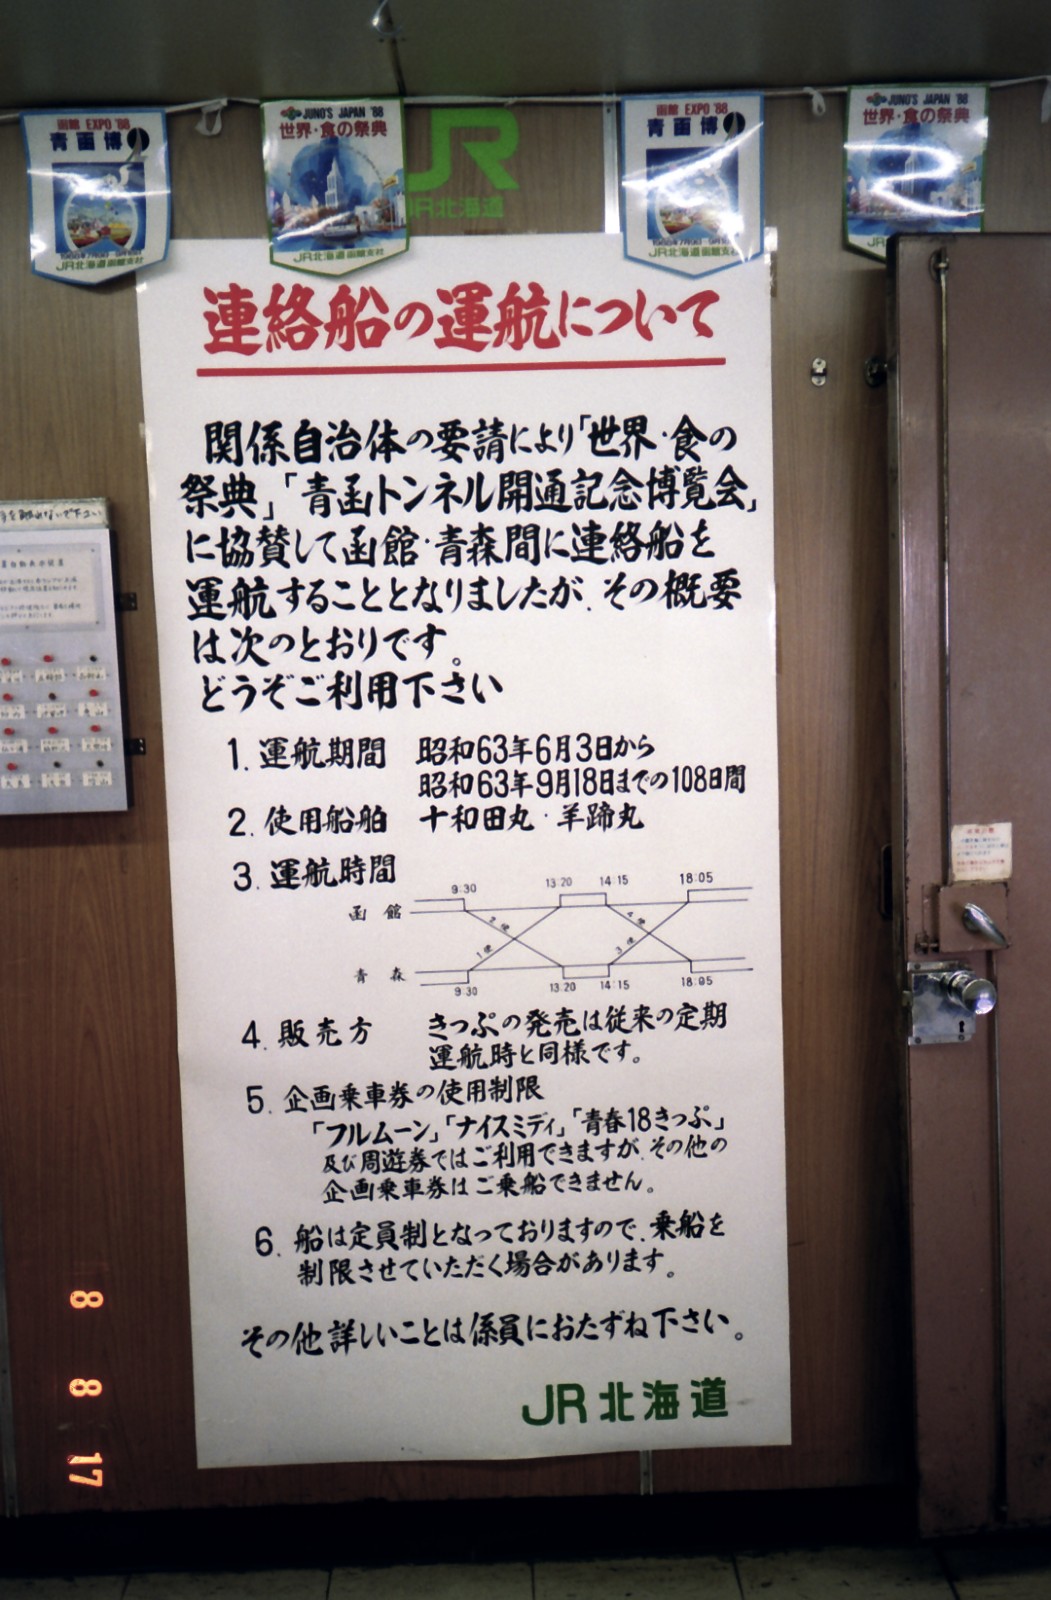 函館 EXPO '88
青函博
JR北海道函館支社
JUNO'S JAPAN '88
世界・食の祭典
JR北海道函館支社
JR
JR北海道
函館 EXPO '88
青函博
JR北海道函館支
JUNO'S JAPAN '88
世界・食の祭典
連絡船の運航について
関係自治体の要請により「世界・食の
祭典」「青函トンネル開通記念博覧会」
に協賛して函館・青森間に連絡船を
運航することとなりましたが、その概要
は次のとおりです。
どうぞご利用下さい
1. 運航期間 昭和63年6月3日から
昭和63年9月18日までの108日間
2. 使用船舶 十和田丸・羊蹄丸
3. 運航時間
9:30 13:20 14:15 18:05
函館
2便 4便
1便 3便
青森
9:30 13:20 14:15 18:05
4. 販売方 きっぷの発売は従来の定期
運航時と同様です。
5. 企画乗車券の使用制限
「フルムーン」「ナイスミディ」「青春18きっぷ」
及び周遊券ではご利用できますが、その他の
企画乗車券はご乗船できません。
6. 船は定員制となっておりますので、乗船を
制限させていただく場合があります。
その他詳しいことは係員におたずね下さい。
JR北海道
8 8 17